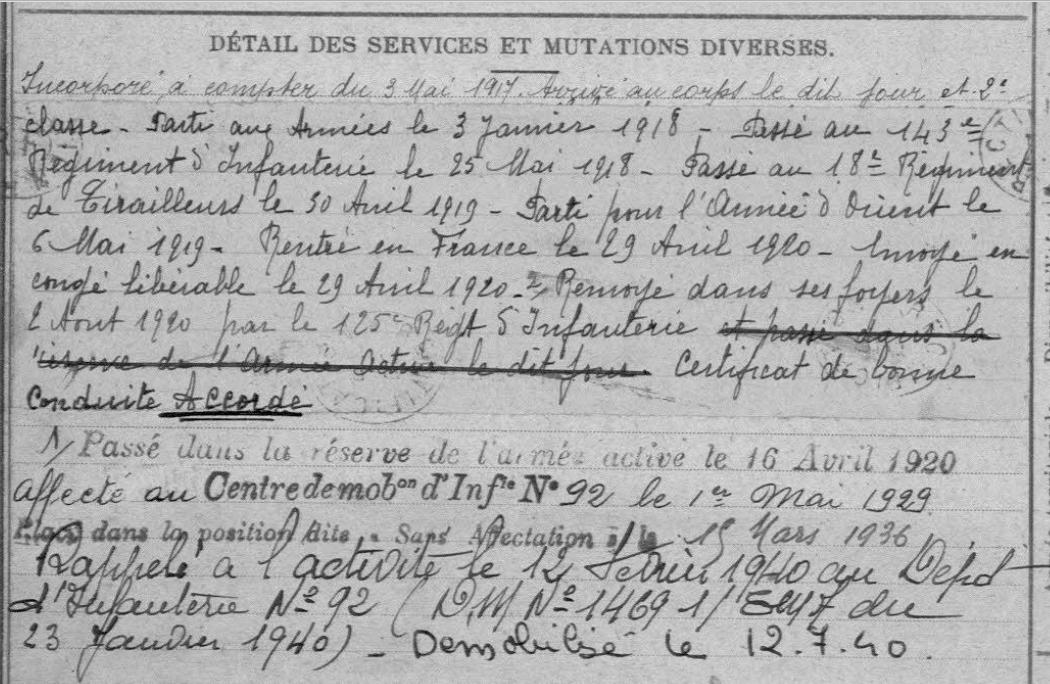 DÉTAIL DES SERVICES ET MUTATIONS DIVERSES.
Incorporé à compter du 3 Mai 1917. Arrivé au corps le dit jour et 2e
classe - Parti aux Armées le 3 Janvier 1918 - Passé au 143e
Régiment d'Infanterie le 25 Mai 1918 - Passé au 18e Régiment
de Tirailleurs le 30 Avril 1919 - Parti pour l'Armée d'Orient le
6 Mai 1919 - Rentré en France le 29 Avril 1920 - Envoyé en
congé libérable le 29 Avril 1920 - Renvoyé dans ses foyers le
2 Aout 1920 par le 125e Régt d'Infanterie et passé dans la
réserve de l'Armée Active le dit jour. Certificat de bonne
Conduite Accordé
1/ Passé dans la réserve de l'armée active le 16 Avril 1920
affecté au Centre de mobon d'Infie No 92 le 1er Mai 1929.
Placé dans la position dite « Sans Affectation » le 15 Mars 1936
Rappelé à l'activité le 12 Février 1940 au Dépot
d'Infanterie No 92 (D.M No 1469 1/ du
23 Janvier 1940) - Demobilisé le 12.7.40.